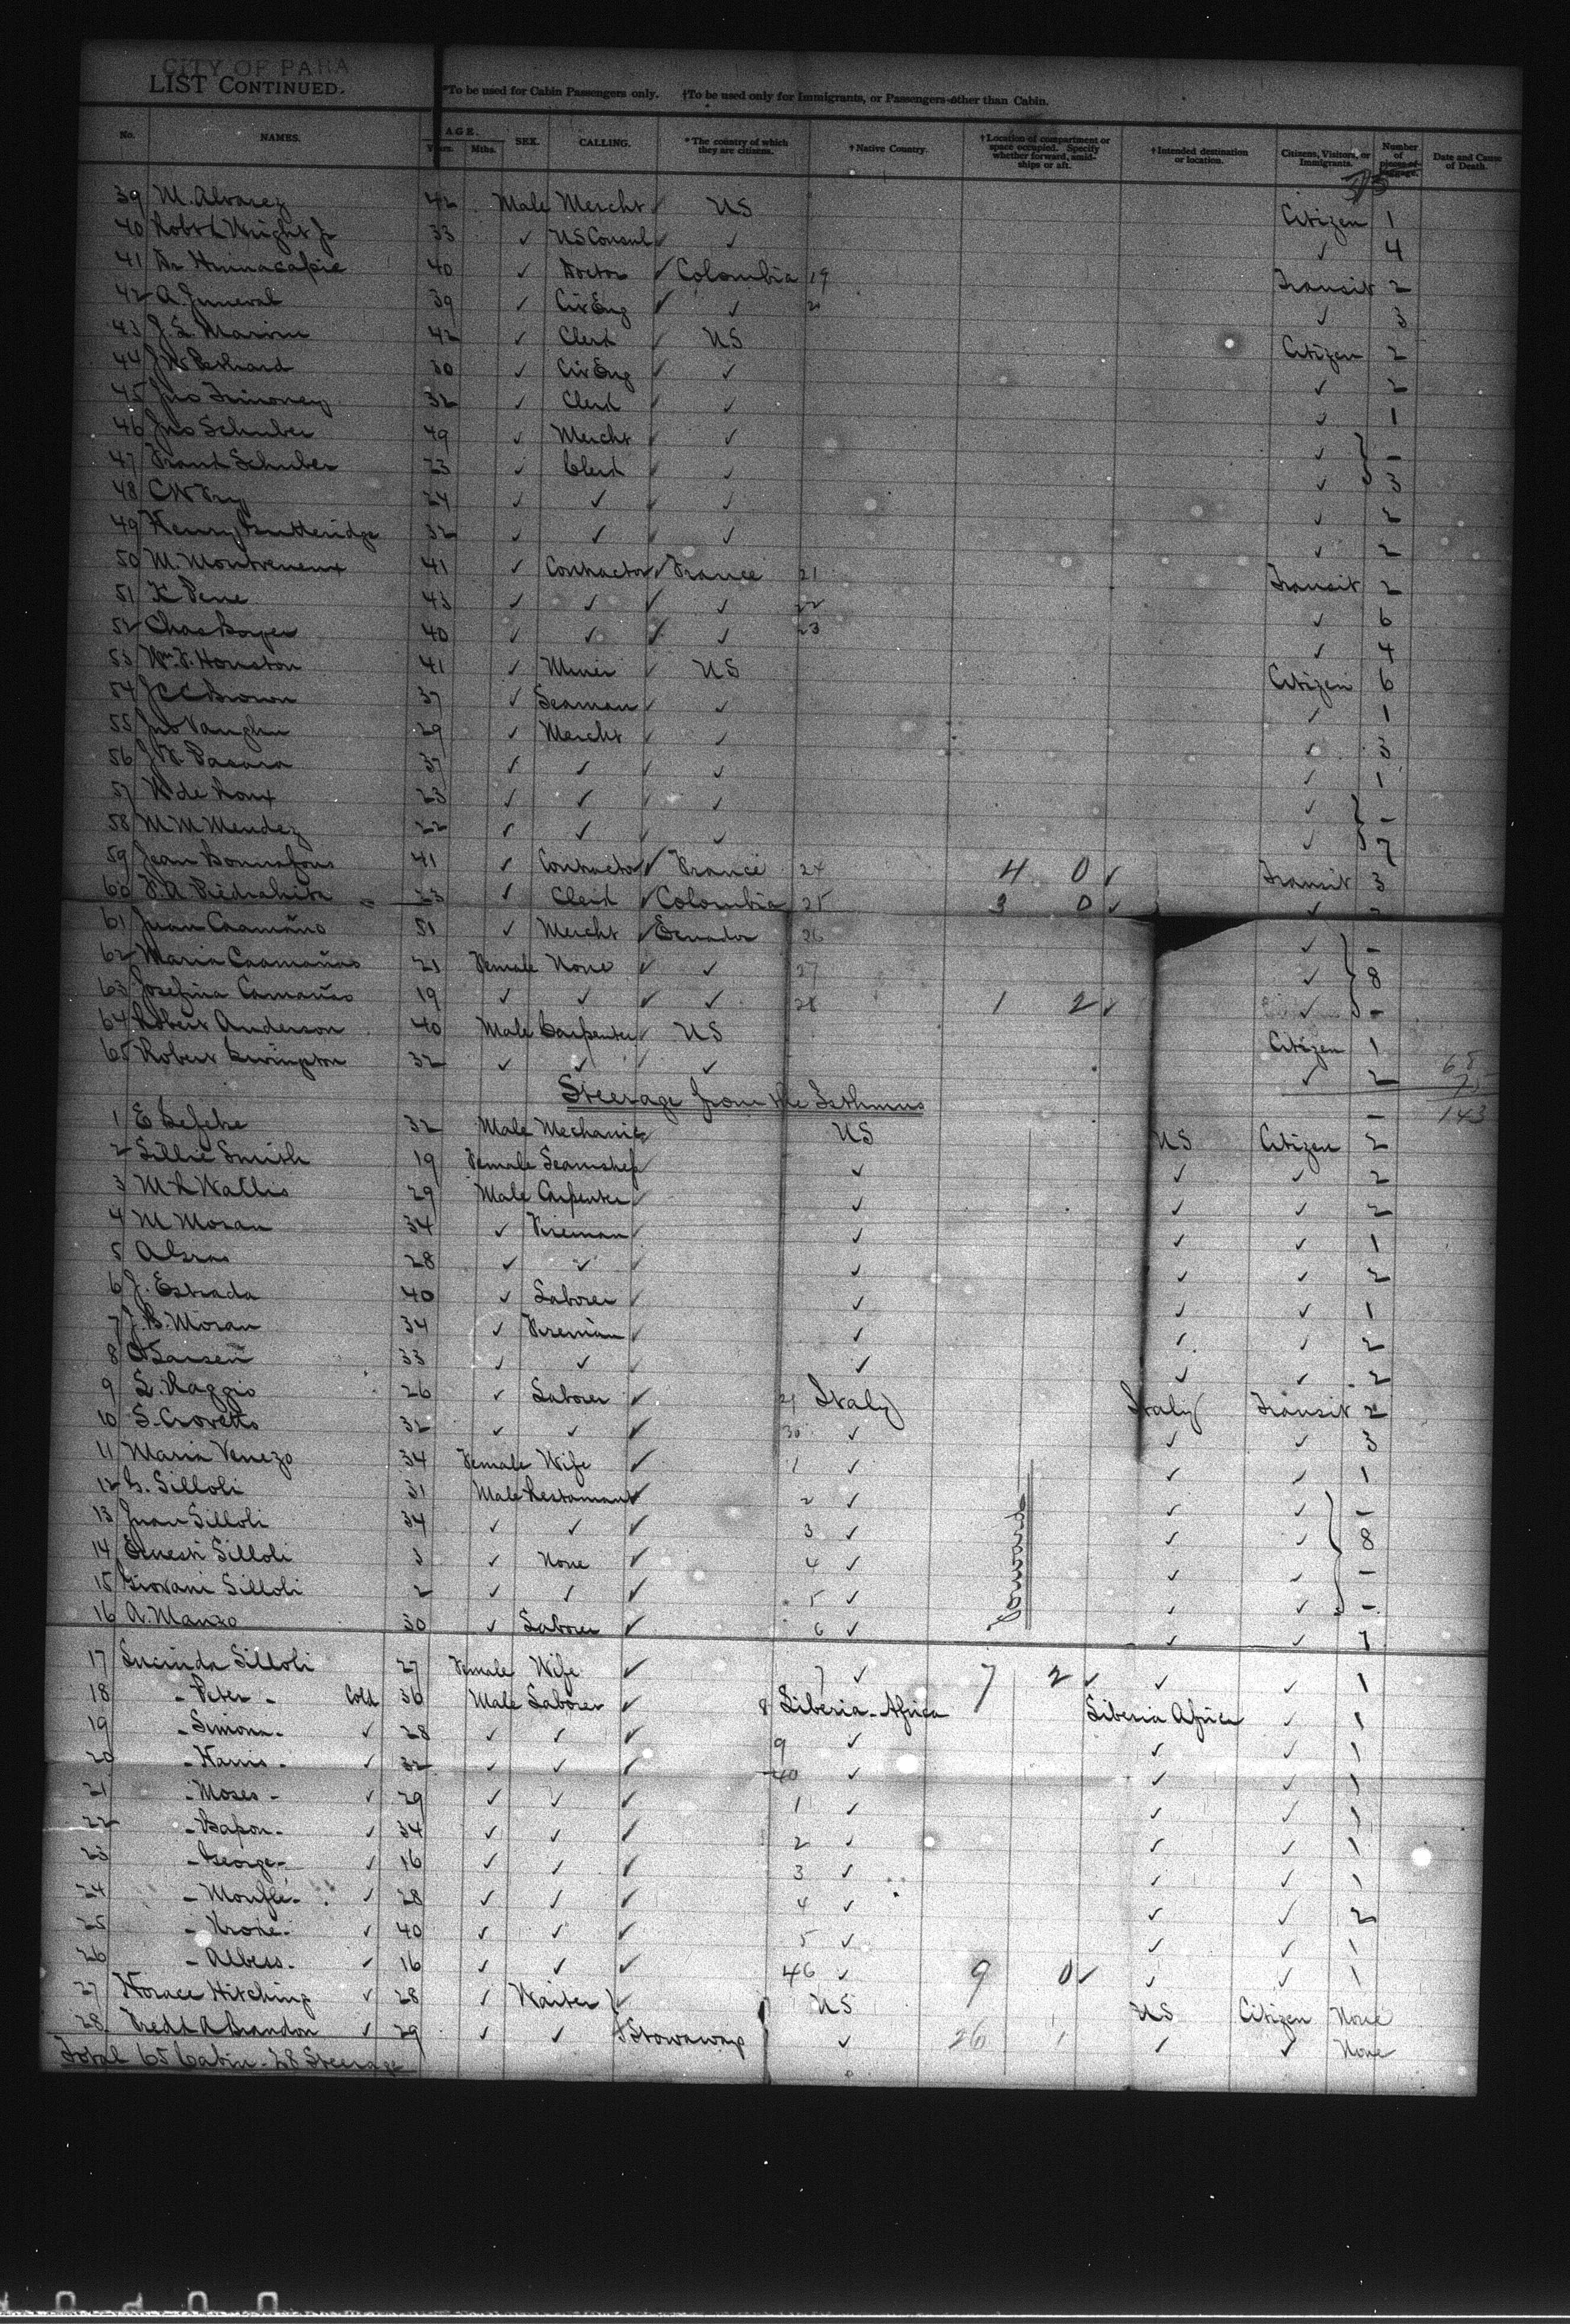 CITY OF PARA
LIST CONTINUED.
*To be used for Cabin Passengers only. †To be used only for Immigrants, or Passengers other than Cabin.
No. NAMES. AGE. Years. Mths. SEX. CALLING. * The country of which they are citizens. † Native Country. † Location of compartment or space occupied. Specify whether forward, amidships or aft. † Intended destination or location. Citizens, Visitors, or Immigrants. Number of pieces of baggage. Date and Cause of Death.
39 M. Alvarez 42 Male Mercht ✓ US Citizen 1
40 Robt L Wright Jr 33 ✓ US Consul ✓ ✓ ✓ 4
41 Dr 40 ✓ Doctor ✓ Colombia 19 Transit 2
42 A. Juneval 39 ✓ Civ Eng ✓ ✓ 20 ✓ 3
43 J. L. 42 ✓ Clerk ✓ US Citizen 2
44 J W 30 ✓ Civ Eng ✓ ✓ ✓ 2
45 Jno Timoney 32 ✓ Clerk ✓ ✓ ✓ 1
46 Jno Schuber 49 ✓ Mercht ✓ ✓ ✓ -
47 Frank Schuber 23 ✓ Clerk ✓ ✓ ✓ 3
48 C W Fry 24 ✓ ✓ ✓ ✓ 2
49 Henry Gutteridge 32 ✓ ✓ ✓ ✓ 2
50 M. 41 ✓ Contractor ✓ France 21 Transit 2
51 K Pene 43 ✓ ✓ ✓ ✓ 22 ✓ 6
52 Chas Boyer 40 ✓ ✓ ✓ ✓ 23 ✓ 4
53 Wm. F. Houston 41 ✓ Miner ✓ US Citizen 6
54 J C C Brown 37 ✓ Seaman ✓ ✓ ✓ 1
55 Jno Vaughn 29 ✓ Mercht ✓ ✓ ✓ 3
56 J. F. 37 ✓ ✓ ✓ ✓ ✓ 1
57 W de 23 ✓ ✓ ✓ ✓ ✓ -
58 M M Mendez 22 ✓ ✓ ✓ ✓ ✓ 7
59 Jean Bonnafous 41 ✓ Contractor ✓ France 24 4 0 ✓ Transit 3
60 F. A. Piedrahita 23 ✓ Clerk ✓ Colombia 25 3 0 ✓ ✓ -
61 Juan Caamaño 51 ✓ Mercht ✓ Ecuador 26 ✓ -
62 Maria Caamaños 21 Female None ✓ ✓ 27 ✓ 8
63 Josefina Camaños 19 ✓ ✓ ✓ ✓ 28 1 2 ✓ ✓ -
64 Robert Anderson 40 Male Carpenter ✓ US Citizen 1
65 Robert 32 ✓ ✓ ✓ ✓ ✓ 2
143
Steerage from the Isthmus
1 E 32 Male Mechanic US US Citizen 2
2 Lillie Smith 19 Female ✓ ✓ ✓ 2
3 M L Wallis 29 Male Carpenter ✓ ✓ ✓ 2
4 M Moran 34 ✓ Fireman ✓ ✓ ✓ 1
5 A 28 ✓ ✓ ✓ ✓ ✓ 2
6 J. Estrada 40 ✓ Laborer ✓ ✓ ✓ 1
7 J. B. Moran 34 ✓ Fireman ✓ ✓ ✓ 2
8 O Larsen 33 ✓ ✓ ✓ ✓ ✓ 2
9 L. Raggio 26 ✓ Laborer ✓ 29 Italy Italy Transit 2
10 S. Crovetto 32 ✓ ✓ ✓ 30 ✓ ✓ ✓ 3
11 Maria Venezo 34 Female Wife ✓ 1 ✓ ✓ ✓ 1
12 G. Silloli 31 Male Restaurant ✓ 2 ✓ ✓ ✓ -
13 Juan Silloli 34 ✓ ✓ ✓ 3 ✓ ✓ ✓ 8
14 Ernesti Silloli 3 ✓ None ✓ 4 ✓ ✓ ✓ -
15 Giovani Silloli 2 ✓ ✓ ✓ 5 ✓ ✓ ✓ -
16 A. Manzo 30 ✓ Laborer ✓ 6 ✓ ✓ ✓ 1
Forward
17 Lucinda Silloli 27 Female Wife ✓ 7 ✓ 7 2 ✓ ✓ ✓ 1
18 - Peter - Cold 36 Male Laborer ✓ 8 Liberia - Africa Liberia Africa ✓ 1
19 - Simona - ✓ 28 ✓ ✓ ✓ 9 ✓ ✓ ✓ 1
20 - Harris - ✓ 32 ✓ ✓ ✓ 40 ✓ ✓ ✓ 1
21 - Moses - ✓ 29 ✓ ✓ ✓ 1 ✓ ✓ ✓ 1
22 - Bapon - ✓ 34 ✓ ✓ ✓ 2 ✓ ✓ ✓ 1
23 - George - ✓ 16 ✓ ✓ ✓ 3 ✓ ✓ ✓ 1
24 ✓ 28 ✓ ✓ ✓ 4 ✓ ✓ ✓ 2
25 ✓ 40 ✓ ✓ ✓ 5 ✓ ✓ ✓ 1
26 - Albess - ✓ 16 ✓ ✓ ✓ 46 ✓ 9 0 ✓ ✓ ✓ 1
27 Horace Hitching ✓ 28 ✓ Waiter ✓ US US Citizen None
28 Fredk A Brandon ✓ 29 ✓ ✓ Stowaways ✓ 26 1 ✓ ✓ None
Total 65 Cabin - 28 Steerage